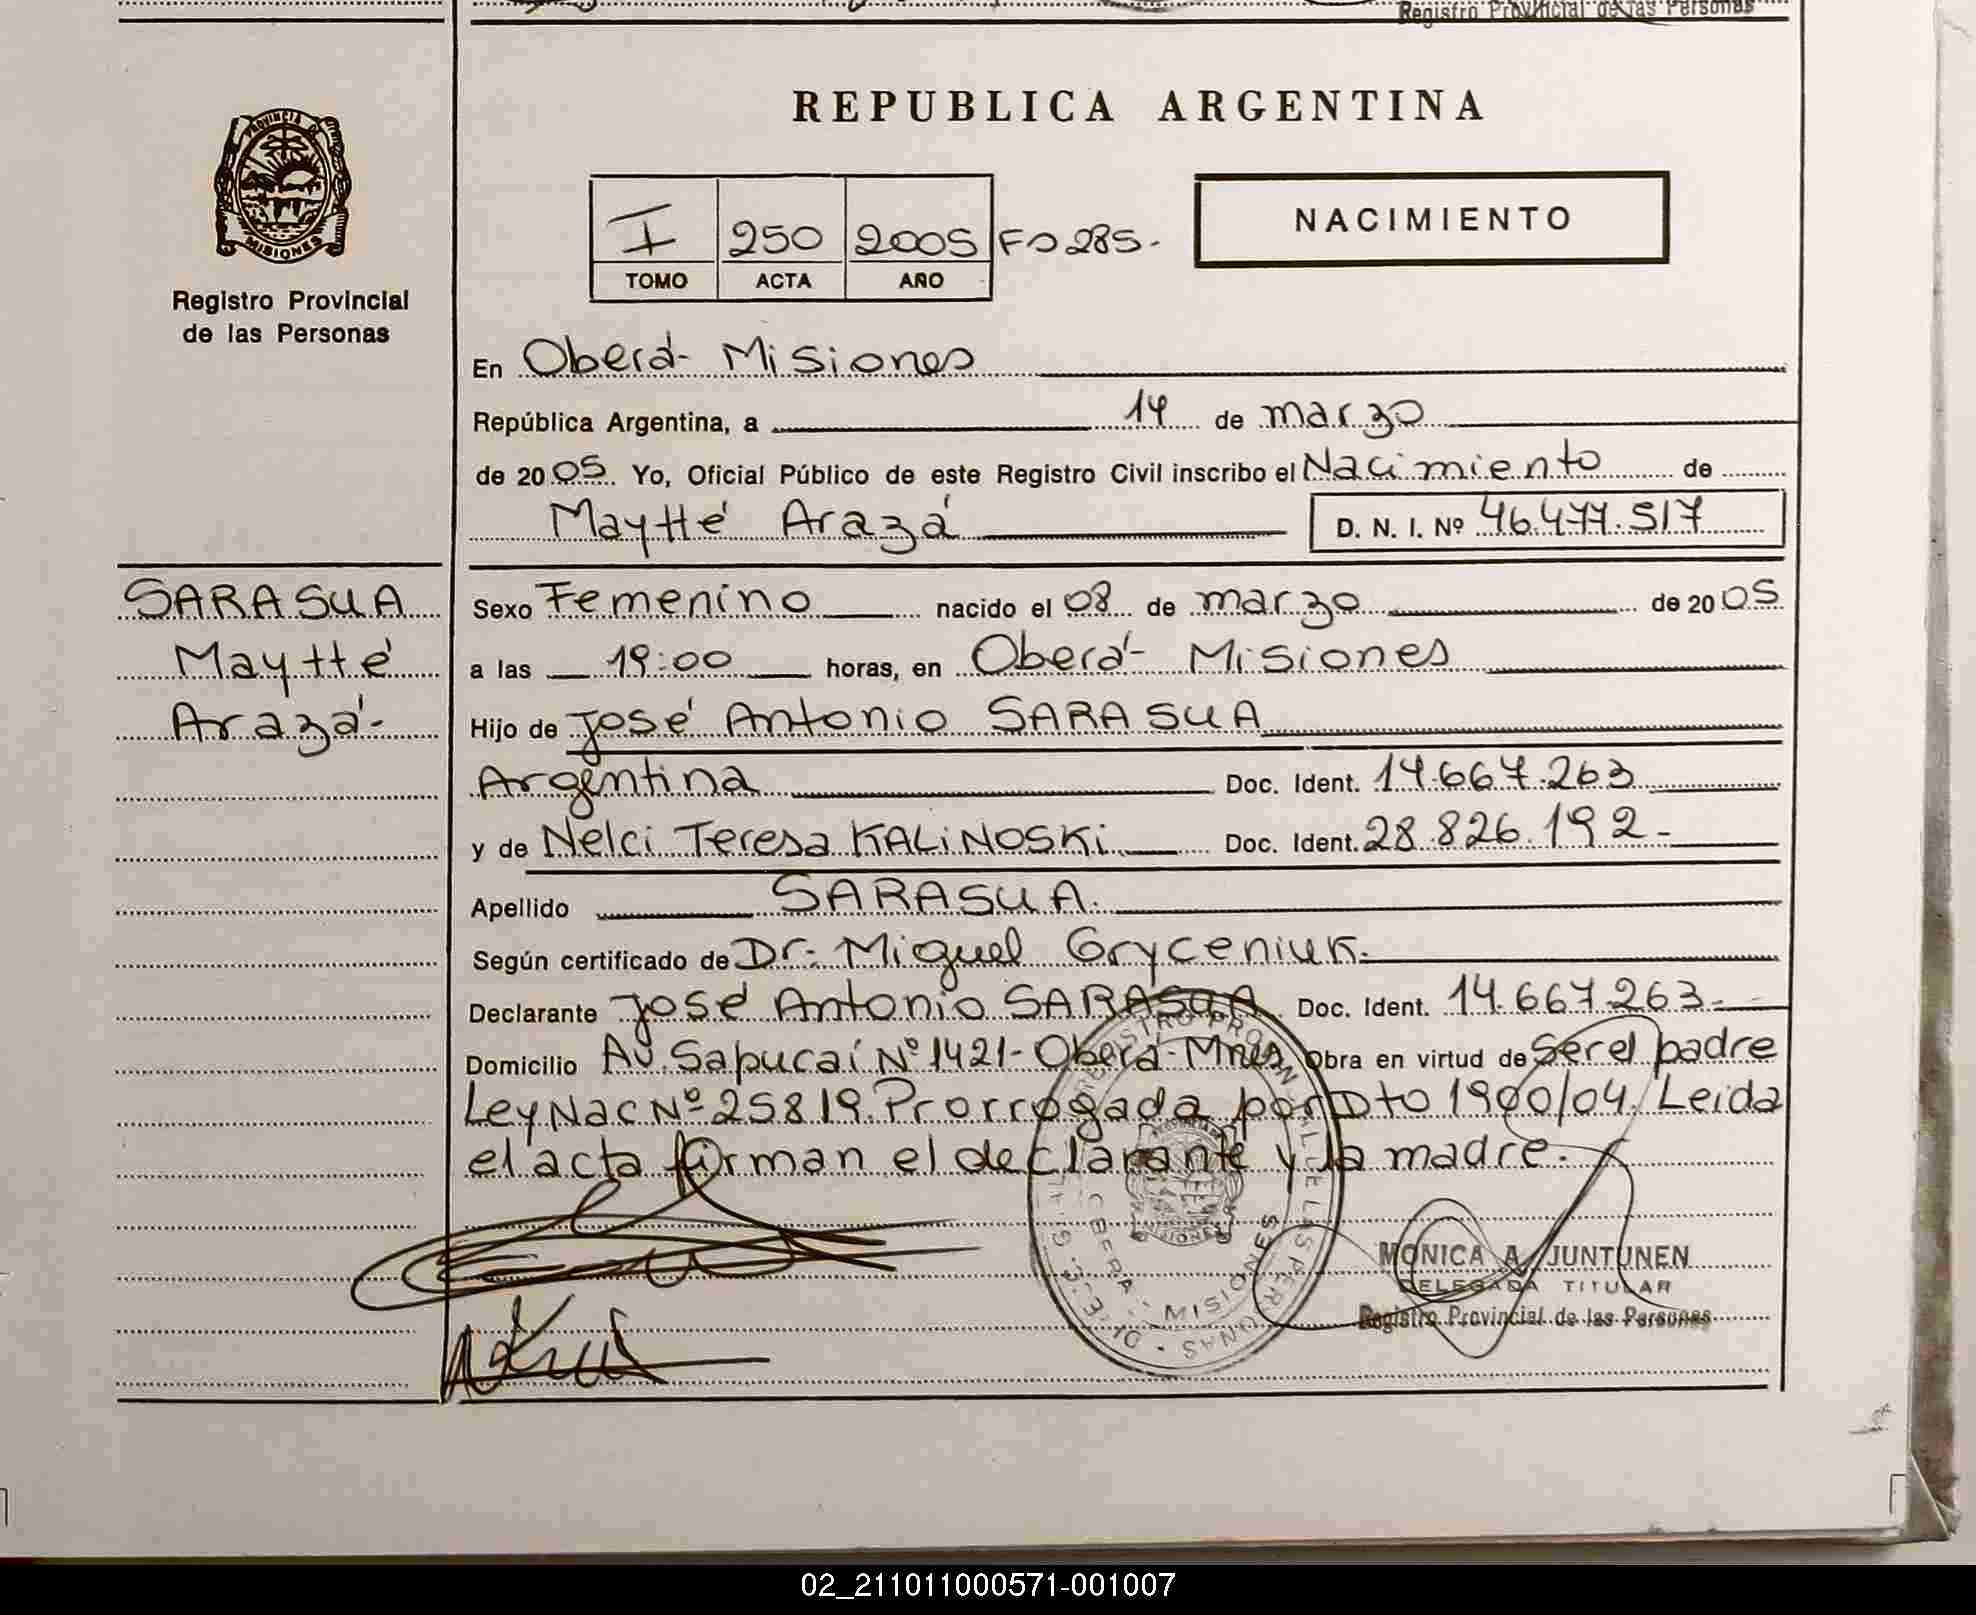 Registro Provincial de las Personas
PROVINCIA DE
MISIONES
Registro Provincial
de las Personas
REPUBLICA ARGENTINA
I 250 2005 Fo 285.
TOMO ACTA AÑO
NACIMIENTO
En Oberá- Misiones
República Argentina, a 14 de marzo
de 2005. Yo, Oficial Público de este Registro Civil inscribo el Nacimiento de
Maytté Arazá D. N. I. Nº 46.477.517
SARASUA
Maytté
Arazá-
Sexo Femenino nacido el 08 de marzo de 2005
a las 19:00 horas, en Oberá- Misiones
Hijo de José Antonio SARASUA
Argentina Doc. Ident. 14.667.263
y de Nelci Teresa KALiNOSKi Doc. Ident. 28.826.192-
Apellido SARASUA.
Según certificado de Dr. Miguel Gryceniuk.
Declarante José Antonio SARASUA Doc. Ident. 14.667.263-
Domicilio Av. Sapucaí Nº 1421- Oberá- Mnes Obra en virtud de ser el padre
Ley Nac Nº 25819. Prorrogada por Dto 1900/04. Leida
el acta firman el declarante y la madre.
MISIONES
MONICA A. JUNTUNEN
DELEGADA TITULAR
Registro Provincial de las Personas
02_211011000571-001007